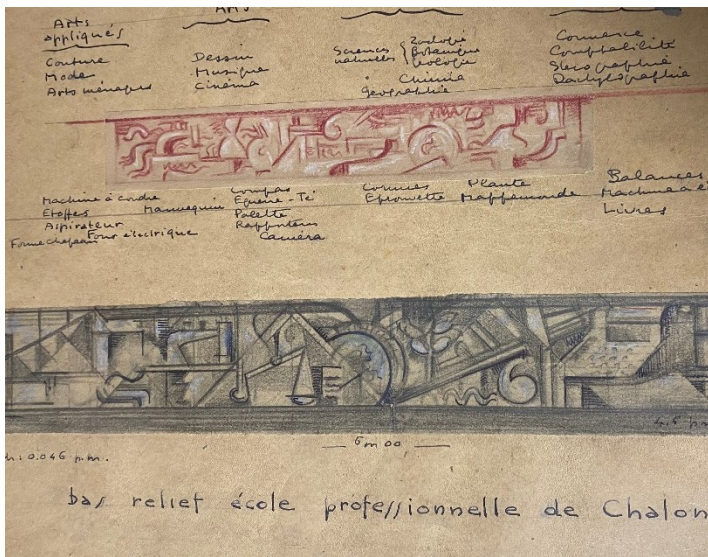 Arts
appliqués
Couture
Mode
Arts ménagers
Arts
Dessin
Musique
Cinéma
Sciences
naturelles
Zoologie
Botanique
Géologie
Chimie
Géographie
Commerce
Comptabilité
Sténographie
Dactylographie
Machine à coudre
Etoffes Mannequin
Aspirateur
Forme chapeau Four électrique
Compas
Equerre - Té
Palette
Rapporteur
Caméra
Cornues
Eprouvette
Plante
Mappemonde
Balances
Machine à
Livres
6m00
h: 0.046 p.m.
bas relief école professionnelle de Chalon